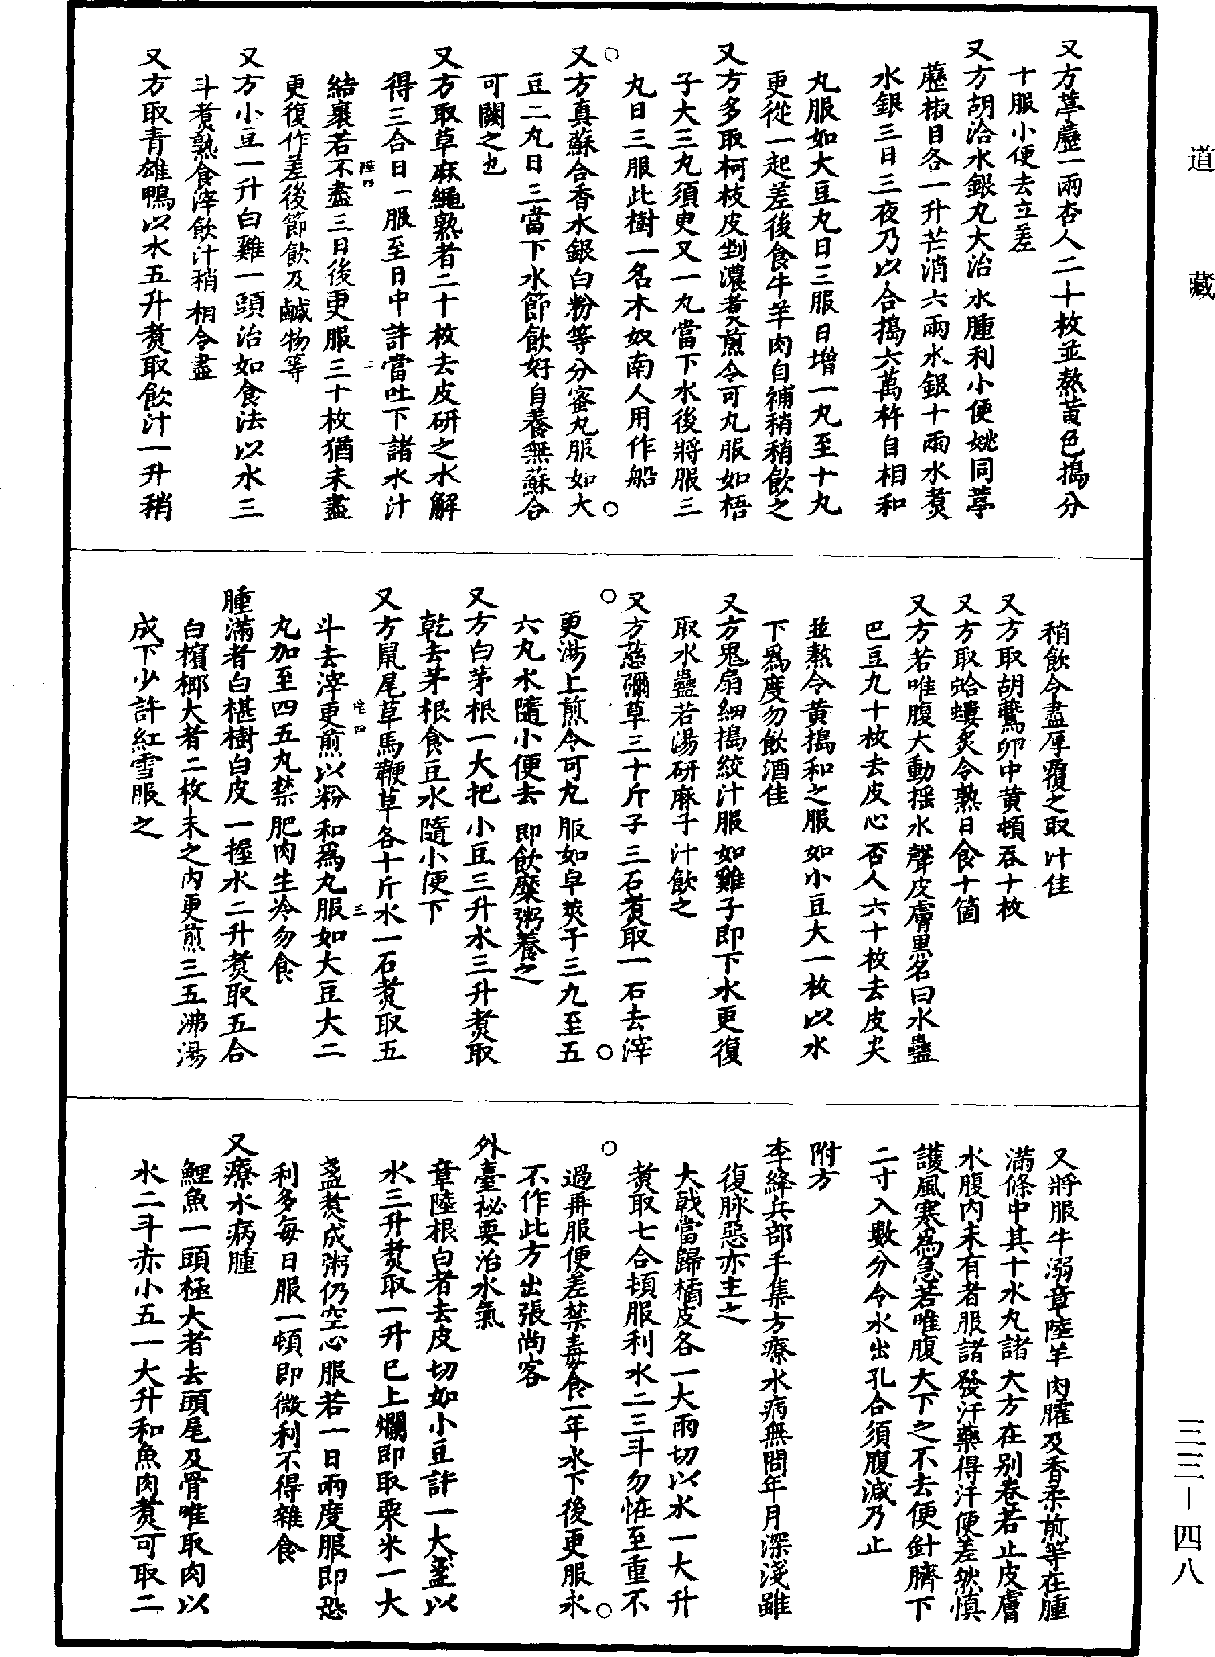 道藏
又方葶藶一兩杏人二十枚並熬黃色搗分
十服小便去立差
又方胡洽水銀丸大治水腫利小便姚同葶
藶椒目各一升芒消六兩水銀十兩水煑
水銀三日三夜乃以合搗六萬杵自相和
丸服如大豆丸日三服日增一丸至十丸
更從一起差後食牛羊肉自補稍稍飲之
又方多取柯枝皮剉濃煑煎令可丸服如梧
子大三丸須臾又一丸當下水後將服三
丸日三服此樹一名木奴南人用作船
又方真蘇合香水銀白粉等分蜜丸服如大
豆二丸日三當下水節飲好自養無蘇合
可闕之也
又方取草麻繩熟者二十枚去皮研之水解
得三合日一服至日中許當吐下諸水汁
結裹若不盡三日後更服三十枚猶未盡
更復作差後節飲及鹹物等
又方小豆一升白雞一頭治如食法以水三
斗煑熟食滓飲汁稍相令盡
又方取青雄鴨以水五升煑取飲汁一升稍
稍飲令盡厚覆之取汁佳
又方取胡鷰卵中黃頓吞十枚
又方取蛤螻炙令熟日食十箇
又方若唯腹大動搖水聲皮膚黑名曰水蠱
巴豆九十枚去皮心杏人六十枚去皮尖
並熬令黃搗和之服如小豆大一枚以水
下爲度勿飲酒佳
又方鬼扇細搗絞汁服如雞子即下水更復
取水蠱若湯研麻子汁飲之
又方慈彌草三十斤子三石煑取一石去滓
更湯上煎令可丸服如皁莢子三丸至五
六丸水隨小便去即飲糜粥養之
又方白茅根一大把小豆三升水三升煑取
乾去茅根食豆水隨小便下
又方鼠尾草馬鞭草各十斤水一石煑取五
斗去滓更煎以粉和爲丸服如大豆大二
丸加至四五丸禁肥肉生冷勿食
腫滿者白椹樹白皮一握水二升煑取五合
白檳榔大者二枚末之內更煎三五沸湯
成下少許紅雪服之
又將服牛溺章陸羊肉臛及香柔煎等在腫
滿條中其十水丸諸大方在别卷若止皮膚
水腹內未有者服諸發汗藥得汗便差然慎
護風寒為急若唯腹大下之不去便針臍下
二寸入數分令水出孔合須腹減乃止
附方
李絳兵部手集方療水病無問年月深淺雖
復脉惡亦主之
大戟當歸橘皮各一大兩切以水一大升
煑取七合頓服利水二三斗勿怪至重不
過再服便差禁毒食一年水下後更服永
不作此方出張尚客
外臺祕要治水氣
章陸根白者去皮切如小豆許一大盞以
水三升煑取一升已上爛即取粟米一大
盞煑成粥仍空心服若一日兩度服即恐
利多每日服一頓即微利不得雜食
又療水病腫
鯉魚一頭極大者去頭尾及骨唯取肉以
水二斗赤小五一大升和魚肉煑可取二
三三—四八